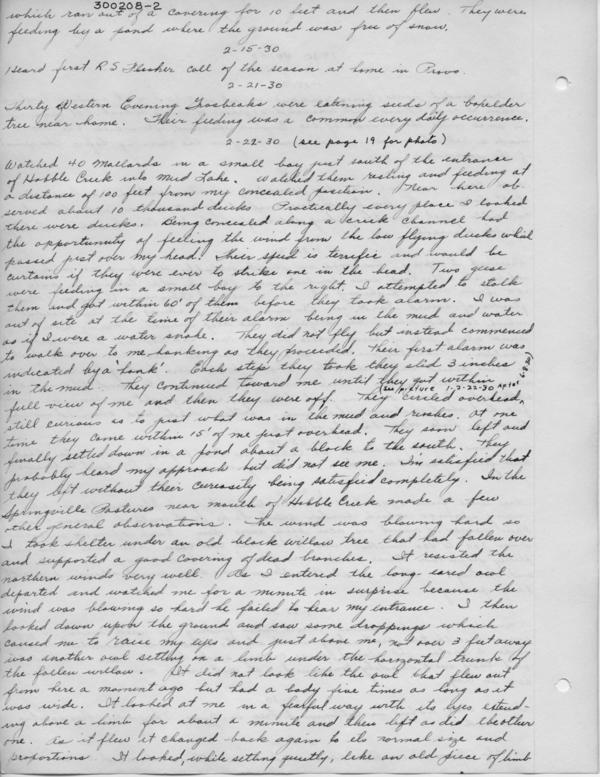 300208-2
which ran out of a covering for 10 feet and then flew. They were
feeding by a pond where the ground was free of snow.
2-15-30
Heard first R S Flicker call of the season at home in Provo.
2-21-30
Thirty Western Evening Grosbeaks were eatening seeds of a boxelder
tree near home. Their feeding was a common every daily occurrence.
2-22-30 (see page 19 for photo)
Watched 40 Mallards in a small bay just south of the entrance
of Hobble Creek into Mud Lake. Watched them resting and feeding at
a distance of 100 feet from my concealed position. Near here ob-
served about 10 thousand ducks Practically every place I looked
there were ducks. Being concealed along a creek channel had
the opportunity of feeling the wind from the low flying ducks which
passed just over my head. Their speed is terrific and would be
curtains if they were ever to strike one in the head. Two geese
were feeding in a small bay to the right. I attempted to stalk
them and got within 60' of them before they took alarm. I was
out of site at the time of their alarm being in the mud and water
as if I were a water snake. They did not fly but instead commenced
to walk over to me honking as they proceeded. Their first alarm was
indicated by a 'honk'. Each step they took they slid 3 inches
in the mud. They continued toward me until they got within
full view of me and then they were off. They circled overhead,
(see picture 1-2-22-30
still curious as to just what was in the mud and rushes. At one
time they came within 15' of me just overhead. They soon left and
finally settled down in a pond about a block to the south. They
probably heard my approach but did not see me. I'm satisfied that
they left without their cureosity being satisfied completely. In the
Springville Pastures near mouth of Hobble Creek made a few
other general observations. The wind was blowing hard so
I took shelter under an old black willow tree that had fallen over
and supported a good covering of dead branches. It resisted the
northern winds very well. As I entered the long-eared owl
departed and watched me for a minute in surprise because the
wind was blowing so hard he failed to hear my entrance. I then
looked down upon the ground and saw some droppings which
caused me to raise my eyes and just above me, not over 3 feet away
was another owl setting on a limb under the horizontal trunk of
the fallen willow. It did not look like the owl that flew out
from here a moment ago but had a body five times as long as it
was wide. It looked at me in a fearful way with its eyes extend-
ing above a limb for about a minute and then left as did the other
one. As it flew it changed back again to its normal size and
proportions. It looked, while setting quietly, like an old piece of limb